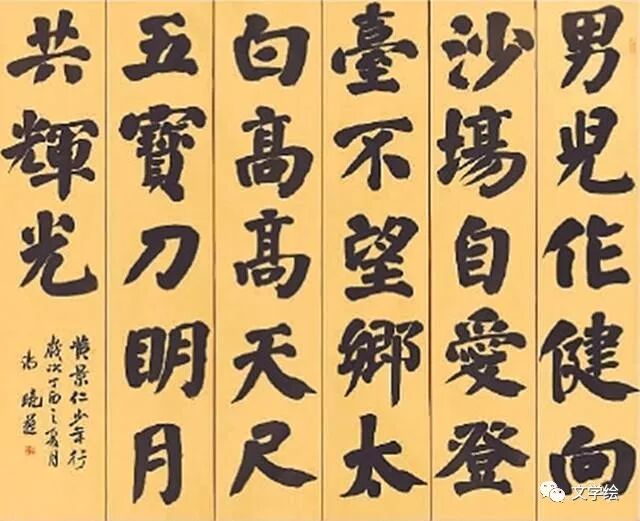 男児作健向
沙場自愛登
臺不望鄉太
白髙髙天尺
五寶刀明月
共輝光
黄景仁少年行
歲次丁酉之夏月
文学绘